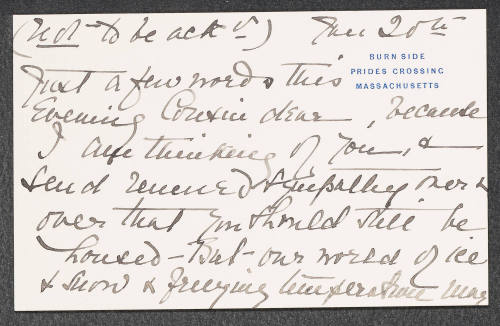 (Not to be ackd) Jan 20th
BURNSIDE
PRIDES CROSSING
MASSACHUSETTS
Just a few words this
Evening Cousin dear, because
I am thinking of you, &
send renewed sympathy over &
over that you should still be
housed - But - our world of ice
& snow & freezing temperature may